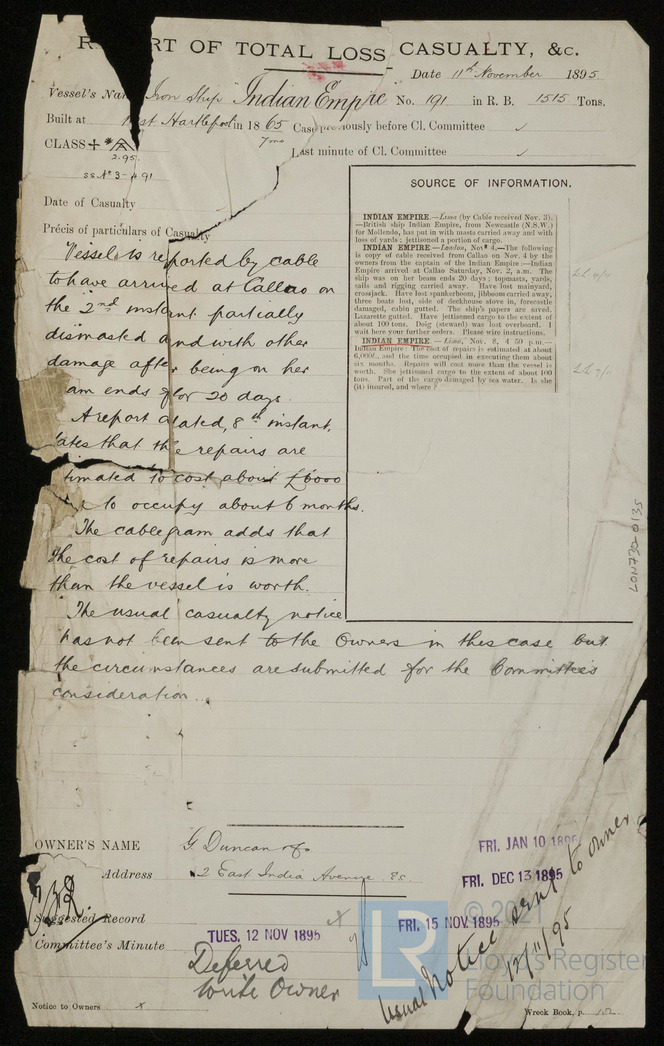 REPORT OF TOTAL LOSS CASUALTY, &c.
Date 11th November 1895
Vessel's Name Iron Ship "Indian Empire No. 191 in R. B. 1515 Tons,
Built at West Hartlepool in 1865 Case previously before Cl. Committee ✓
7 mo
CLASS + * A
2.95.
SS No 3 - 4 91
Last minute of Cl. Committee ✓
Date of Casualty
Précis of particulars of Casualty
Vessel is reported by cable
to have arrived at Callao on
the 2nd instant partially
dismasted and with other
damage after being on her
am ends for 20 days.
A report dated, 8th instant,
tates that the repairs are
timated to cost about £6000
to occupy about 6 months.
The cablegram adds that
the cost of repairs is more
than the vessel is worth.
The usual casualty notice
has not been sent to the Owners in this case but
the circumstances are submitted for the Committee's
consideration.
SOURCE OF INFORMATION.
INDIAN EMPIRE.—Lima (by Cable received Nov. 3).
—British ship Indian Empire, from Newcastle (N.S.W.)
for Mollendo, has put in with masts carried away and with
loss of yards; jettisoned a portion of cargo.
INDIAN EMPIRE.—London, Nov. 4.—The following
is copy of cable received from Callao on Nov. 4 by the
owners from the captain of the Indian Empire:—Indian
Empire arrived at Callao Saturday, Nov. 2, a.m. The
ship was on her beam ends 20 days; topmasts, yards,
sails and rigging carried away. Have lost mainyard,
crossjack. Have lost spankerboom, jibboom carried away,
three boats lost, side of deckhouse stove in, forecastle
damaged, cabin gutted. The ship's papers are saved.
Lazarette gutted. Have jettisoned cargo to the extent of
about 100 tons. Doig (steward) was lost overboard. I
wait here your further orders. Please wire instructions.
INDIAN EMPIRE.—Lima, Nov. 8, 4 50 p.m.—
Indian Empire: The cost of repairs is estimated at about
6,000l., and the time occupied in executing them about
six months. Repairs will cost more than the vessel is
worth. She jettisoned cargo to the extent of about 100
tons. Part of the cargo damaged by sea water. Is she
(it) insured, and where?
LL 4/11
LL 9/11
LON730-0135
OWNER'S NAME G. Duncan & Co
Address 2 East India Avenue Ec.
FRI. JAN 10 1896
FRI. DEC 13 1895
Suggested Record
Committee's Minute
TUES, 12 NOV 1895
FRI. 15 NOV 1895
Deferred
Write Owner
Usual Notice sent to owner
12/11/95
© 2021
LR
Lloyd's Register
Foundation
Notice to Owners x
Wreck Book, p.